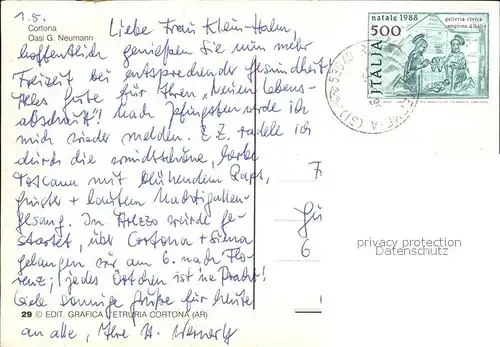 1.5.
Cortona
Oasi G. Neumann
Liebe Frau Klein-Halm
hoffentlich genießen Sie nun mehr
Freizeit bei entsprechender Gesundheit!
Alles Gute für Ihren „Neuen Lebens-
abschnitt"! Nach Pfingsten werde ich
mich wieder melden. Z.Z. radele ich
durch die wunderschöne, herbe
Toscana mit blühendem Raps,
Ginster + lautem Nachtigallen-
gesang. In Arezzo wurde ge-
startet, über Cortona + Siena
gelangen wir am 6. nach Flo-
renz; jedes Örtchen ist 'ne Pracht!
Viele sonnige Grüße für heute
an alle, Ihre H.
29 © EDIT. GRAFICA ETRURIA CORTONA (AR)
natale 1988
galleria civica
campione d'italia
500
ITALIA
F
Gu
6
privacy protection
Datenschutz